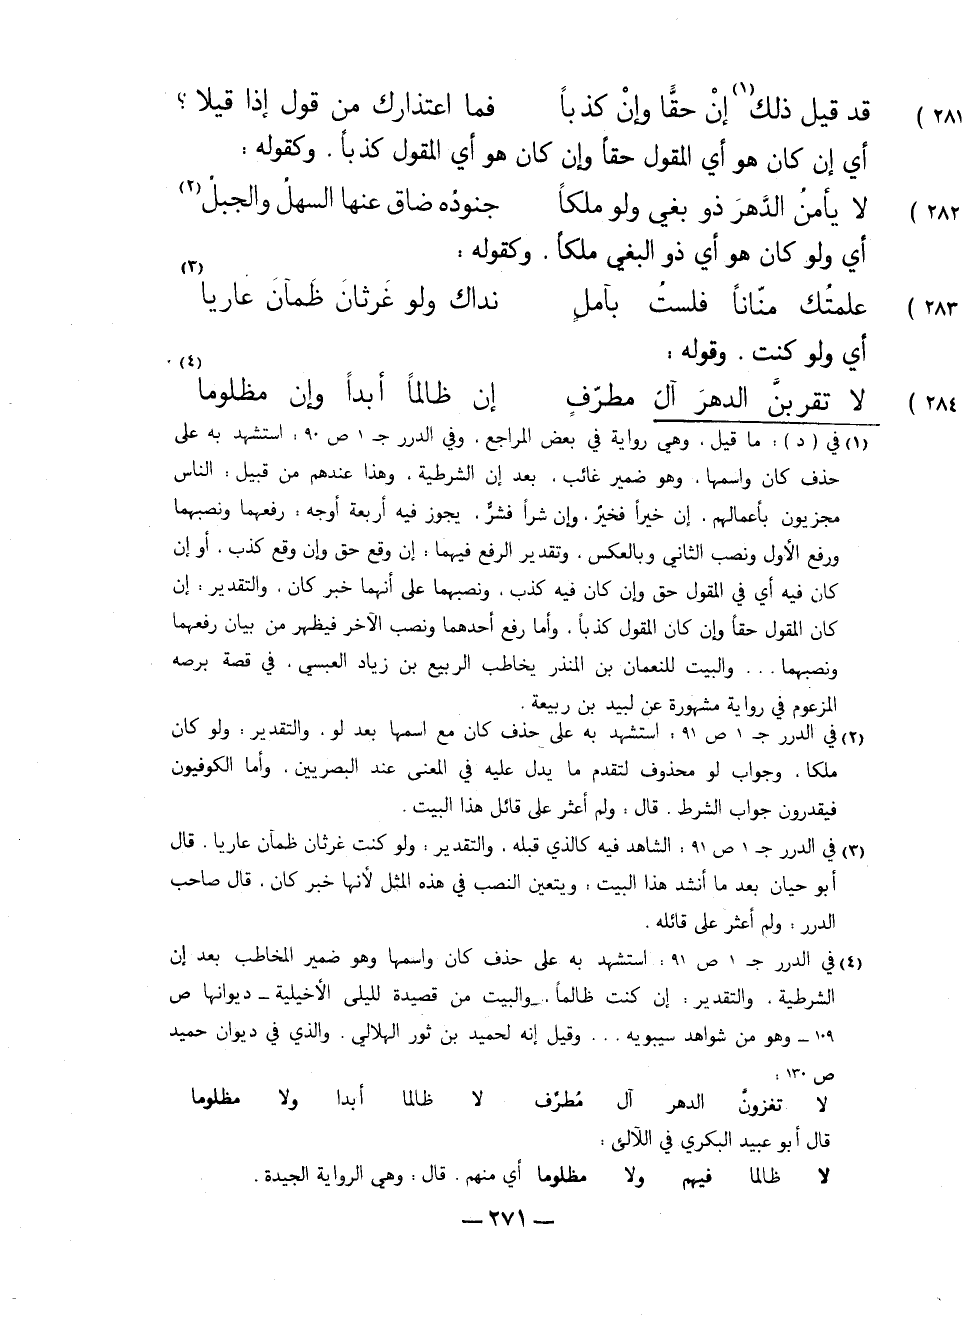 ٢٨١ ) قد قيل ذلك(١) إنْ حقًّا وإنْ كذباً فما اعتذارك من قول إذا قيلا ؟
أي إن كان هو أي المقول حقاً وإن كان هو أي المقول كذباً . وكقوله :
٢٨٢ ) لا يأمنُ الدَّهرَ ذو بغي ولو ملكاً جنودُه ضاق عنها السهلُ والجبلُ(٢)
أي ولو كان هو أي ذو البغي ملكاً . وكقوله :
٢٨٣ ) علمتُك منّاناً فلستُ بآملٍ نداك ولو غَرثانَ ظَمآنَ عاريا(٣)
أي ولو كنت . وقوله :
٢٨٤ ) لا تقربنَّ الدهرَ آلَ مطرّفٍ إن ظالماً أبداً وإن مظلوما(٤)
(١) في ( د ) : ما قيل . وهي رواية في بعض المراجع . وفي الدرر جـ ١ ص ٩٠ : استشهد به على
حذف كان واسمها . وهو ضمير غائب . بعد إن الشرطية . وهذا عندهم من قبيل : الناس
مجزيون بأعمالهم . إن خيراً فخيرٌ . وإن شراً فشرٌّ . يجوز فيه أربعة أوجه : رفعهما ونصبهما
ورفع الأول ونصب الثاني وبالعكس . وتقدير الرفع فيهما : إن وقع حق وإن وقع كذب . أو إن
كان فيه أي في المقول حق وإن كان فيه كذب . ونصبهما على أنهما خبر كان . والتقدير : إن
كان المقول حقاً وإن كان المقول كذباً . وأما رفع أحدهما ونصب الآخر فيظهر من بيان رفعهما
ونصبهما . . . والبيت للنعمان بن المنذر يخاطب الربيع بن زياد العبسي . في قصة برصه
المزعوم في رواية مشهورة عن لبيد بن ربيعة .
(٢) في الدرر جـ ١ ص ٩١ : استشهد به على حذف كان مع اسمها بعد لو . والتقدير : ولو كان
ملكا . وجواب لو محذوف لتقدم ما يدل عليه في المعنى عند البصريين . وأما الكوفيون
فيقدرون جواب الشرط . قال : ولم أعثر على قائل هذا البيت .
(٣) في الدرر جـ ١ ص ٩١ : الشاهد فيه كالذي قبله . والتقدير : ولو كنت غرثان ظمآن عاريا . قال
أبو حيان بعد ما أنشد هذا البيت : ويتعين النصب في هذه المثل لأنها خبر كان . قال صاحب
الدرر : ولم أعثر على قائله .
(٤) في الدرر جـ ١ ص ٩١ : استشهد به على حذف كان واسمها وهو ضمير المخاطب بعد إن
الشرطية . والتقدير : إن كنت ظالماً . والبيت من قصيدة لليلى الأخيلية ـ ديوانها ص
١٠٩ ـ وهو من شواهد سيبويه . . . وقيل إنه لحميد بن ثور الهلالي . والذي في ديوان حميد
ص ١٣٠ :
لا تغزونَّ الدهر آل مُطرِّف لا ظالما أبدا ولا مظلوما
قال أبو عبيد البكري في اللآلئ :
لا ظالما فيهم ولا مظلوما أي منهم . قال : وهي الرواية الجيدة .
— ٢٧١ —